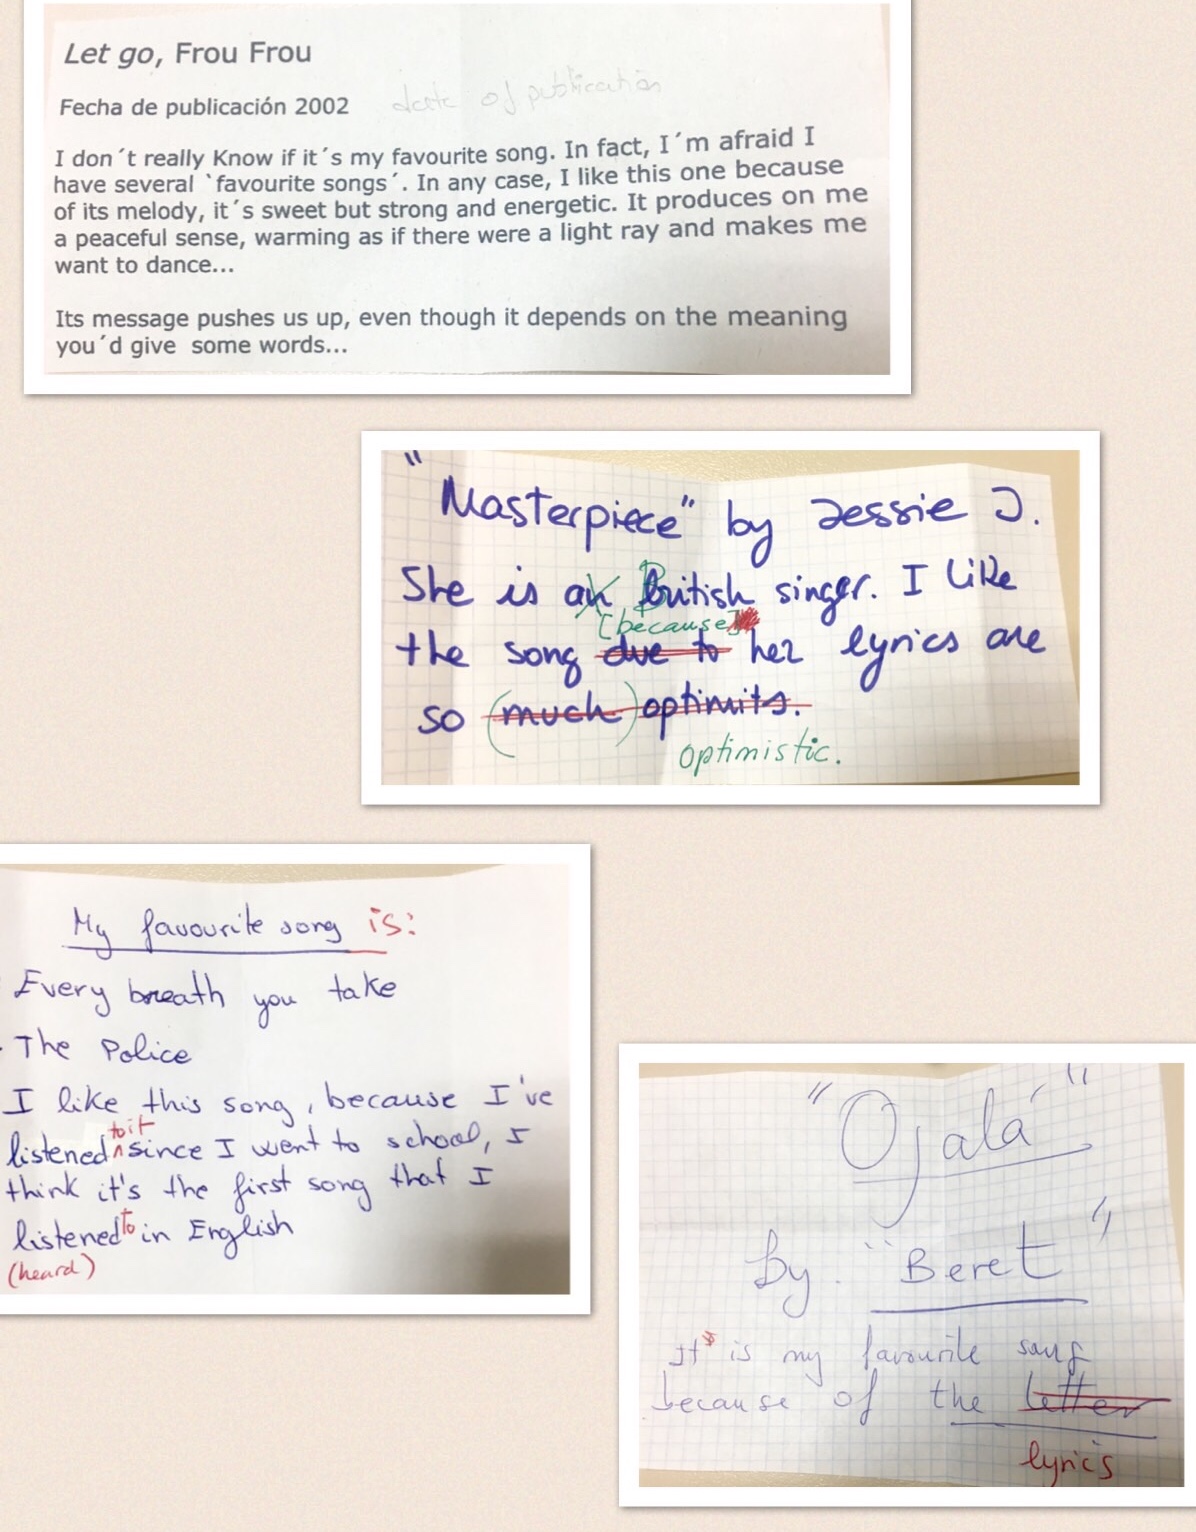 Let go, Frou Frou
Fecha de publicación 2002 date of publication
I don´t really Know if it´s my favourite song. In fact, I´m afraid I
have several `favourite songs´. In any case, I like this one because
of its melody, it´s sweet but strong and energetic. It produces on me
a peaceful sense, warming as if there were a light ray and makes me
want to dance...
Its message pushes us up, even though it depends on the meaning
you´d give some words...
"Masterpiece" by Jessie J.
She is an British singer. I like
[because]
the song due to her lyrics are
so (much) optimits.
optimistic.
My favourite song is:
Every breath you take
- The Police
I like this song, because I've
to it
listened ^ since I went to school, I
think it's the first song that I
listened to in English
(heard)
"Ojalá"
by "Beret"
It is my favourite song
because of the letter
lyrics